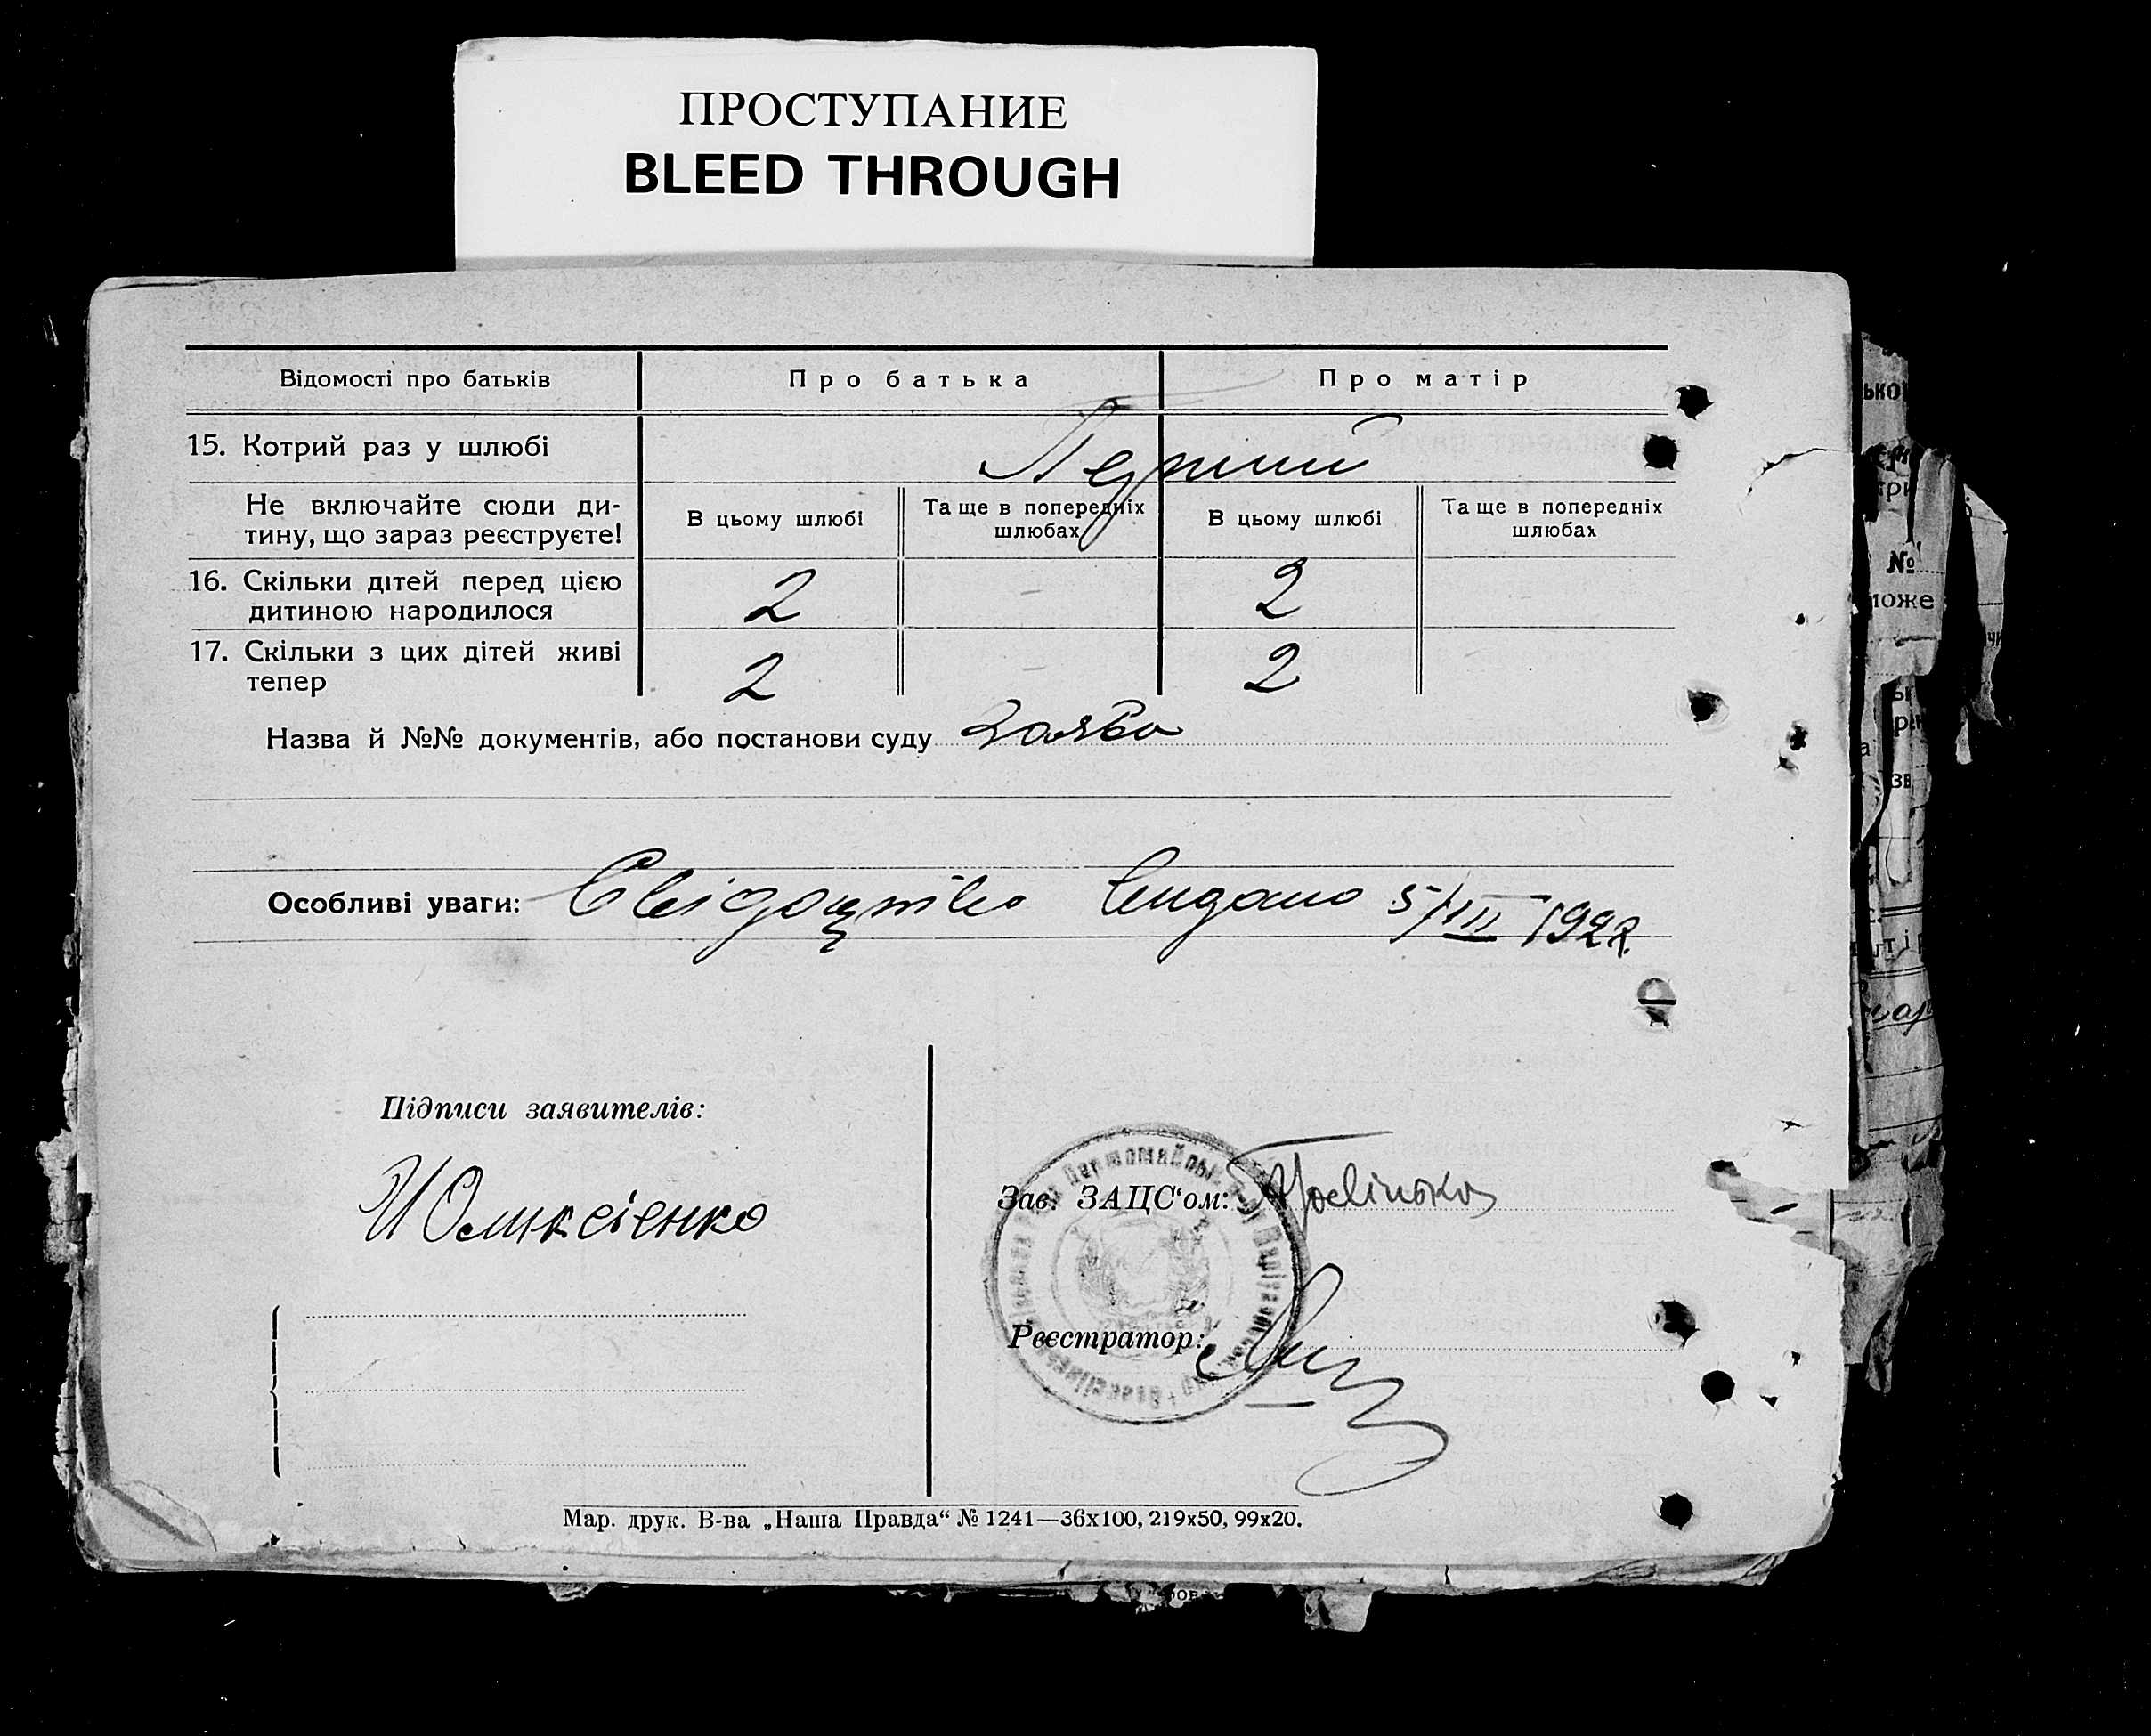 ПРОСТУПАНИЕ
BLEED THROUGH
Відомості про батьків Про батька Про матір
15. Котрий раз у шлюбі Перший
Не включайте сюди ди- В цьому шлюбі Та ще в попередніх В цьому шлюбі Та ще в попередніх
тину, що зараз реєструєте! шлюбах шлюбах
16. Скільки дітей перед цією 2 – 2
дитиною народилося
17. Скільки з цих дітей живі 2 – 2
тепер
Назва й №№ документів, або постанови суду Заява
Особливі уваги: Свідоцтво видано 5/III
Підписи заявителів:
Зав. ЗАЦС'ом:
Реєстратор:
Мар. друк. В-ва „Наша Правда“ № 1241—36x100, 219x50, 99x20.
№
може